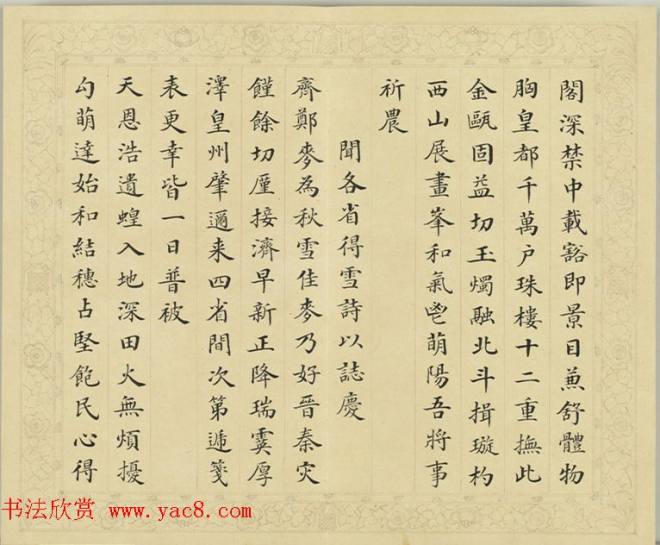 閣深禁中載豁即景目兼舒體物
胸皇都千萬户珠樓十二重撫此
金甌固益切玉燭融北斗揖璇杓
西山展畫峯和氣鬯萌陽吾將事
祈農
聞各省得雪詩以誌慶
齊鄭麥為秋雪佳麥乃好晉秦灾
饉餘切廑接濟早新正降瑞霙厚
澤皇州肇邇来四省間次第遞箋
表更幸皆一日普被
天恩浩遺蝗入地深田火無煩擾
勾萌達始和結穗占堅飽民心得
书法欣赏 www.yac8.com